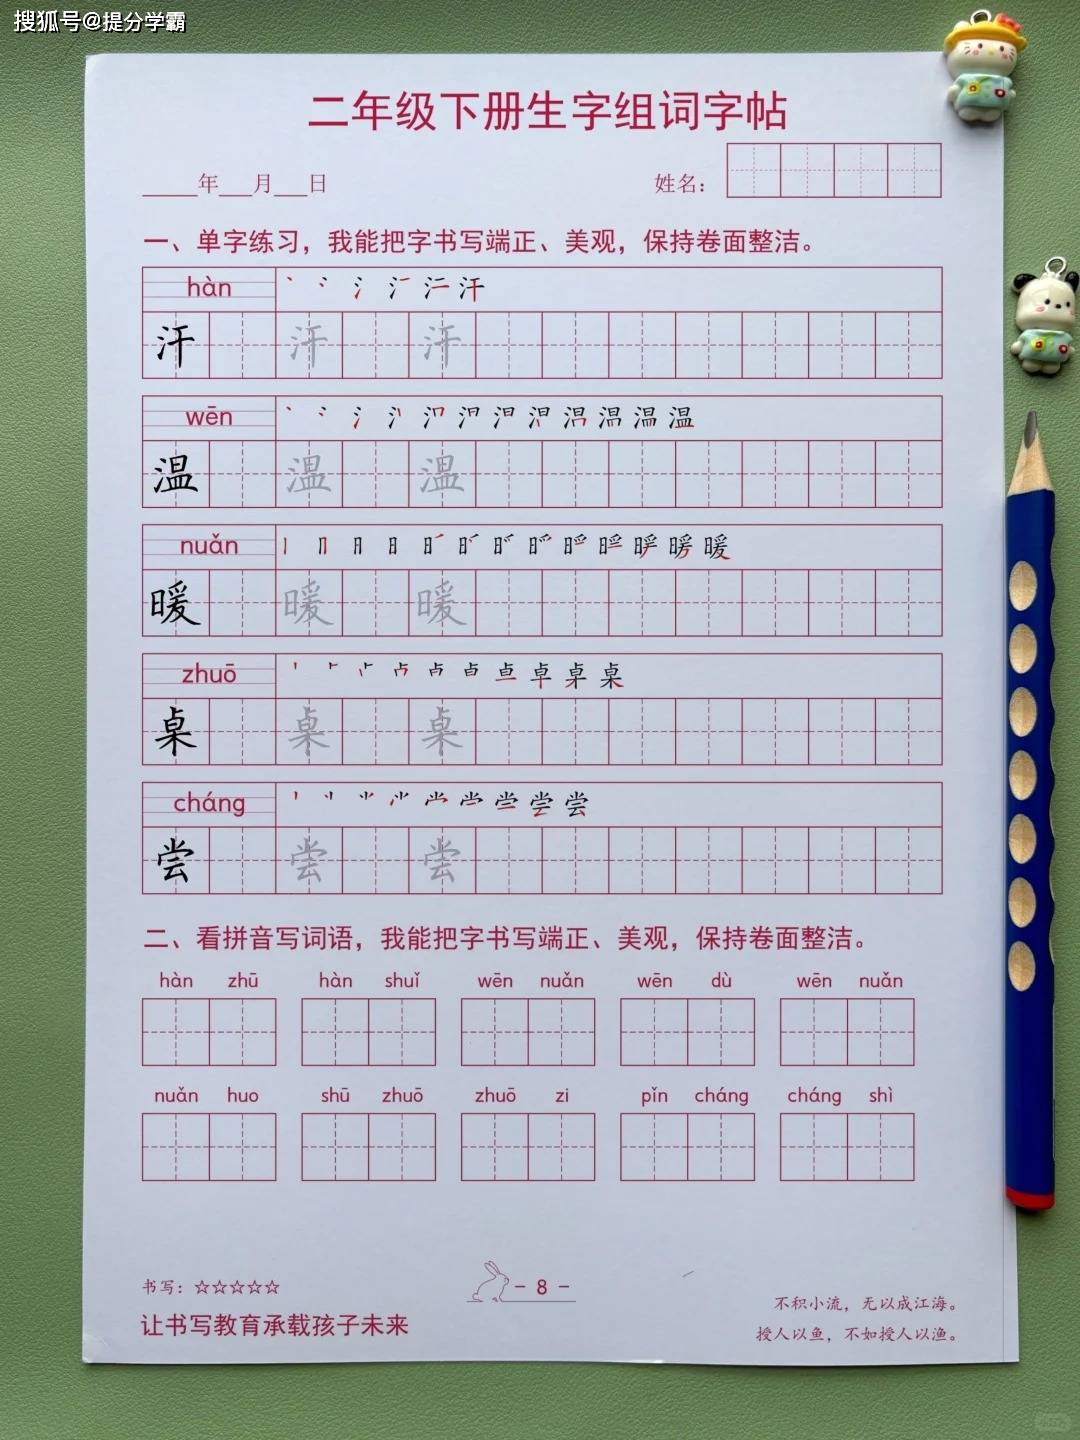 搜狐号@提分学霸
二年级下册生字组词字帖
_____年___月___日 姓名：
一、单字练习，我能把字书写端正、美观，保持卷面整洁。
hàn
汗 汗 汗
wēn
温 温 温
nuǎn
暖 暖 暖
zhuō
桌 桌 桌
cháng
尝 尝 尝
二、看拼音写词语，我能把字书写端正、美观，保持卷面整洁。
hàn zhū hàn shuǐ wēn nuǎn wēn dù wēn nuǎn
nuǎn huo shū zhuō zhuō zi pǐn cháng cháng shì
书写：☆☆☆☆☆
- 8 -
不积小流，无以成江海。
让书写教育承载孩子未来
授人以鱼，不如授人以渔。